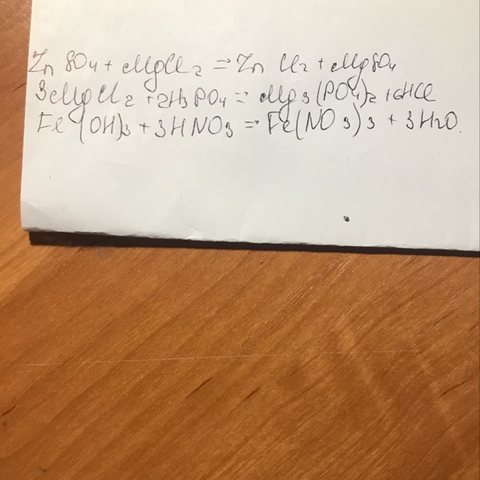 Zn SO4 + MgCl2 = Zn Cl2 + MgSO4
3MgCl2 + 2H3PO4 = Mg3(PO4)2 + 6HCl
Fe(OH)3 + 3HNO3 = Fe(NO3)3 + 3H2O.